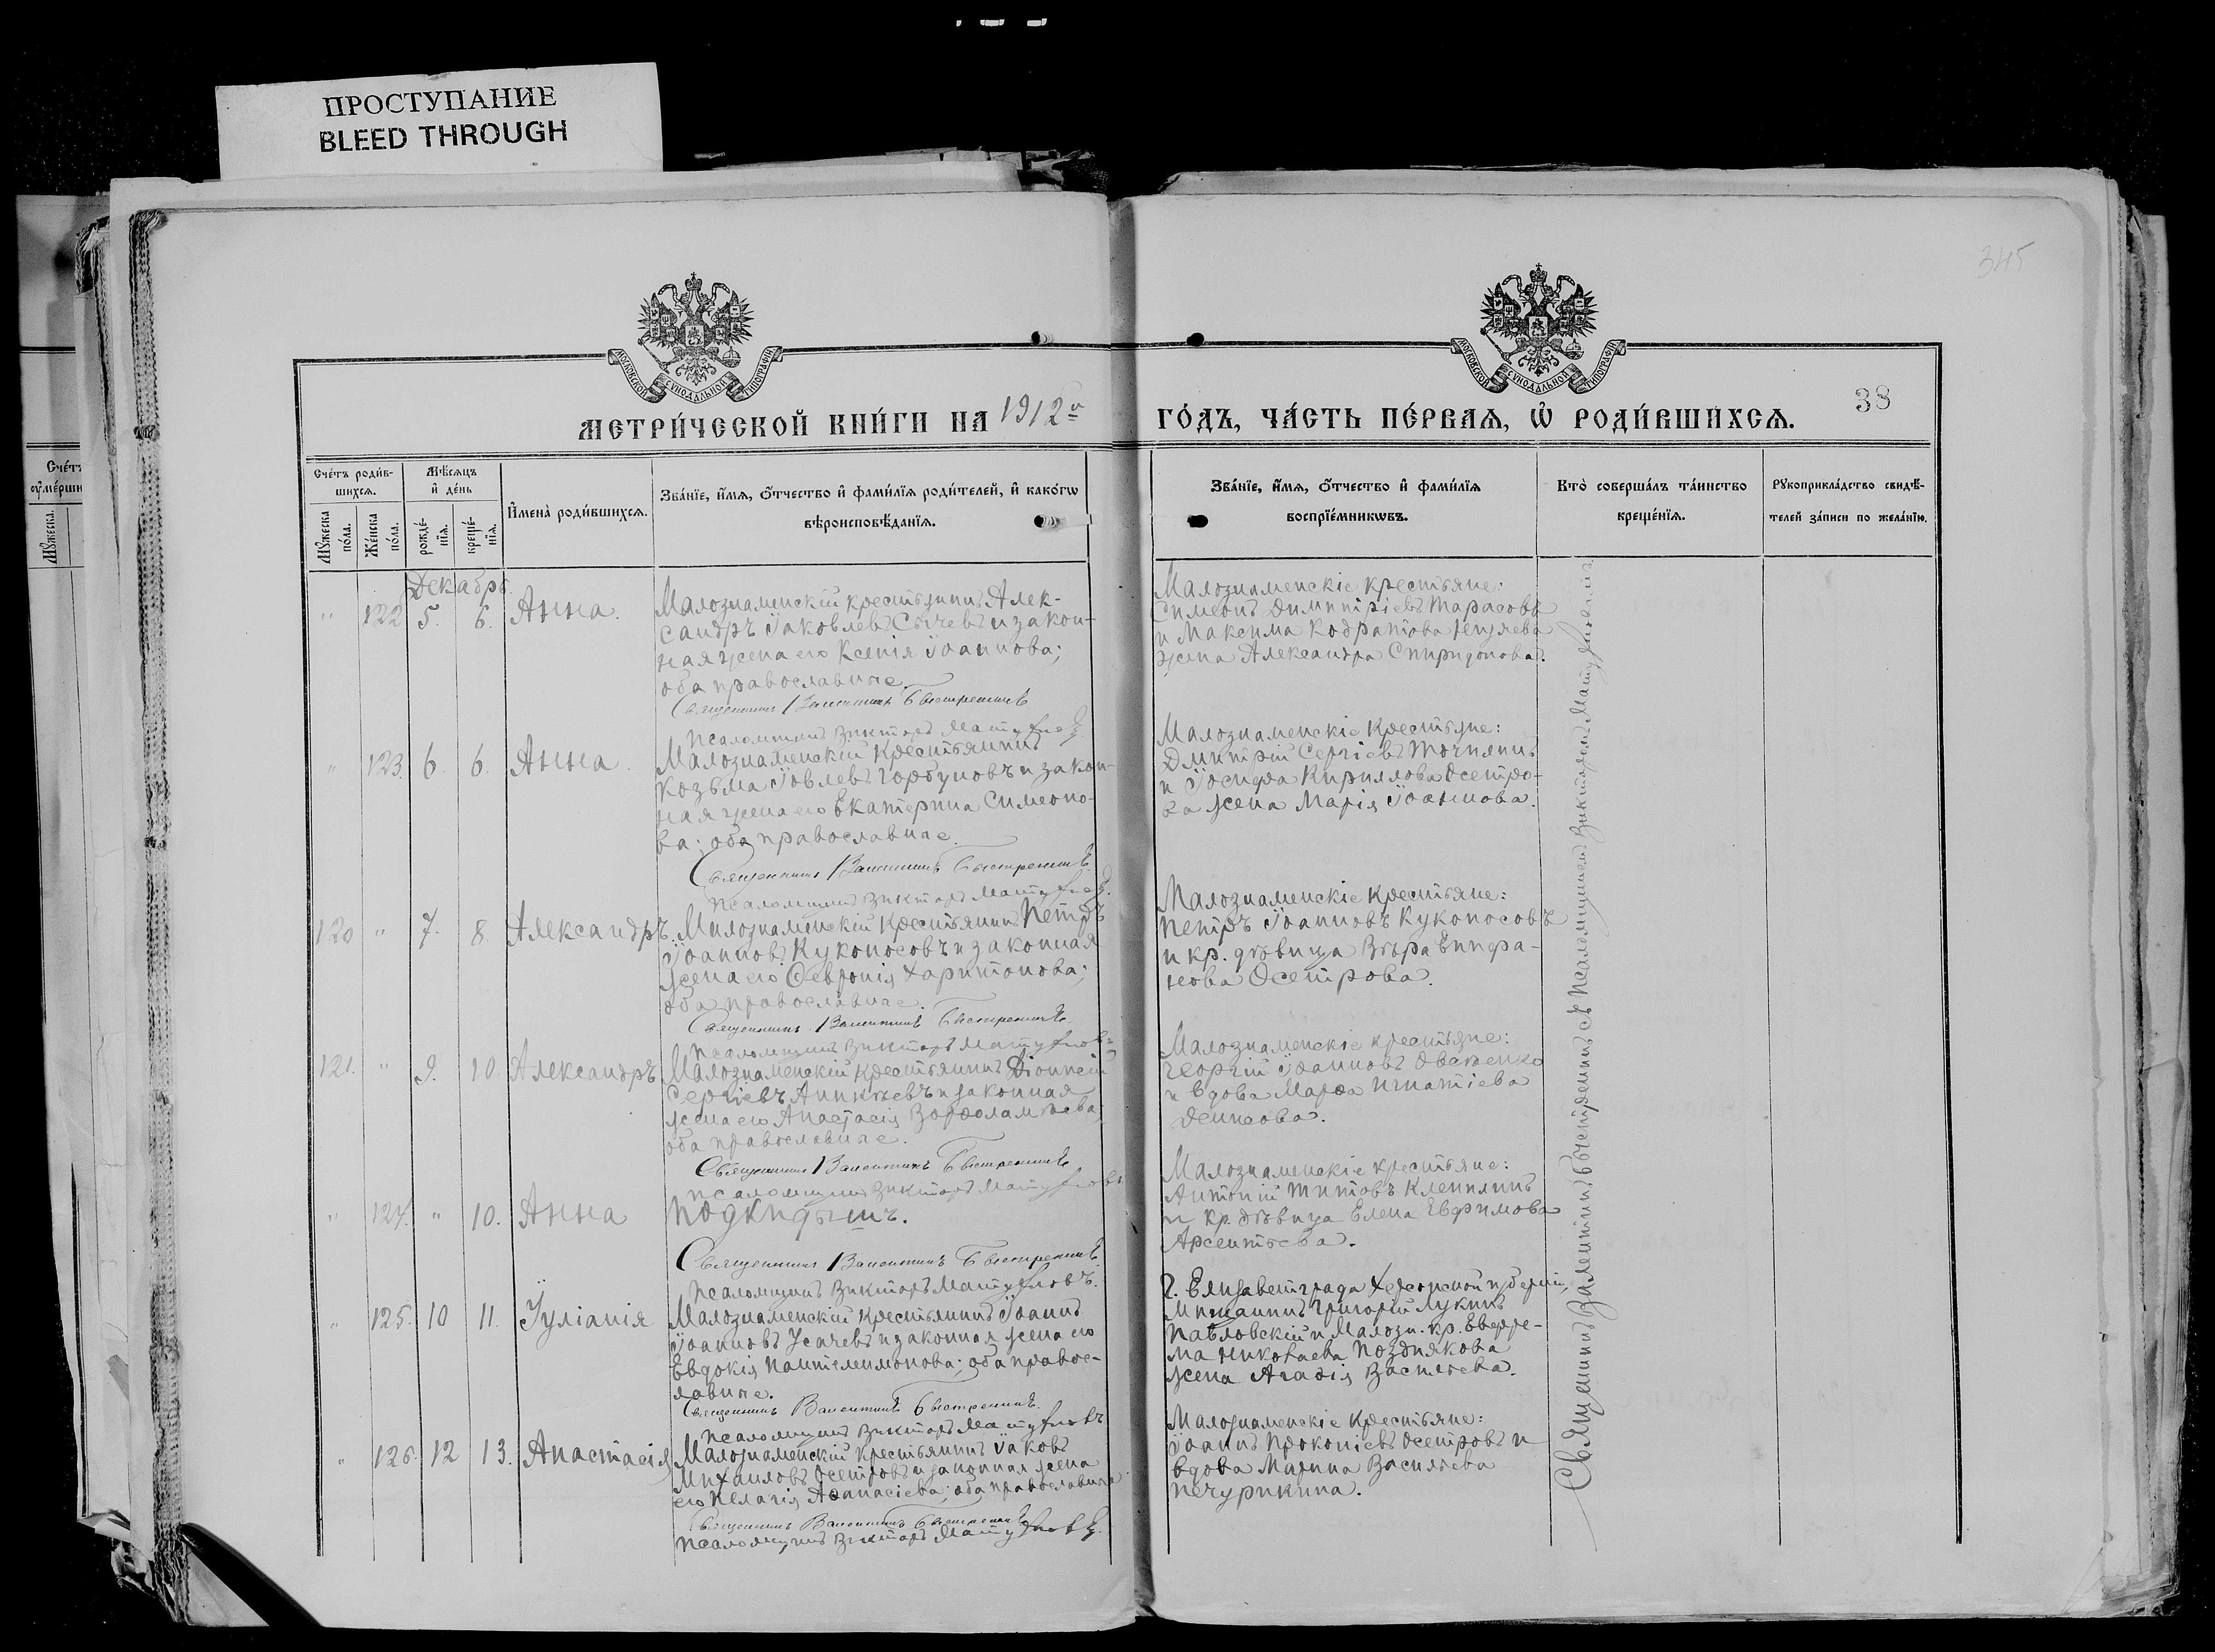 ПРОСТУПАНИЕ
BLEED THROUGH
345
МОСКОВСКОЙ СѴНОДАЛЬНОЙ ТИПОГРАФІИ
МОСКОВСКОЙ СѴНОДАЛЬНОЙ ТИПОГРАФІИ
МЕТРИ́ЧЕСКОЙ КНИ́ГИ НА 1912й
ГО́ДЪ, ЧА́СТЬ ПЕ́РВАѦ, Ѡ҆ РОДИ́ВШИХСѦ.
38
Сче́тъ роди́в-
шихсѧ.
Мѣ́сѧцъ
и҆ де́нь
Мꙋ́жеска по́ла.
Же́нска по́ла.
рожде́-
нїѧ.
креще́-
нїѧ.
И҆мена̀ роди́вшихсѧ.
Зва́нїе, и҆́мѧ, ѻ҆́тчество и҆ фами́лїѧ роди́телей, и҆ како́гѡ
вѣроисповѣ́данїѧ.
Зва́нїе, и҆́мѧ, ѻ҆́тчество и҆ фами́лїѧ
воспрїе́мникѡвъ.
Кто̀ соверша́лъ та́инство
креще́нїѧ.
Рꙋкоприкла́дство свидѣ́-
телей за́писи по жела́нїю.
Сче́тъ
ᲂу҆ме́рши
Мꙋ́жеска.
Декабрь
" 122 5. 6. Анна.
Малознаменскій крестьянинъ Алек-
сандръ Іаковлевъ Сычевъ и закон-
ная жена его Ксенія Іоаннова;
оба православные.
Священникъ Валентинъ Быстренинъ
Псаломщикъ Викторъ
Малознаменскіе крестьяне:
Симеонъ Димитріевъ Тарасовъ
и Максима Кодратова
жена Александра Спиридонова.
" 123. 6. 6. Анна.
Малознаменскій крестьянинъ
Козьма Іовлевъ Горбуновъ и закон-
ная жена его Екатерина Симеоно-
ва; оба православные.
Священникъ Валентинъ Быстренинъ
Псаломщикъ Викторъ
Малознаменскіе крестьяне:
Дмитрій Сергіевъ Точилинъ
и Іосифа Кириллова Осетро-
ва жена Марія Іоаннова.
120 " 7. 8. Александръ.
Малознаменскій крестьянинъ Петръ
Іоанновъ Куконосовъ и законная
жена его Ѳевронія Харитонова;
оба православные.
Священникъ Валентинъ Быстренинъ
Псаломщикъ Викторъ
Малознаменскіе крестьяне:
Петръ Іоанновъ Куконосовъ
и кр. дѣвица Вѣра Епифа-
нова Осетрова.
121. " 9. 10. Александръ
Малознаменскій крестьянинъ Діонисій
Сергіевъ Аникѣевъ и законная
жена его Анастасія Варѳоламѣева,
оба православные.
Священникъ Валентинъ Быстренинъ
Псаломщикъ Викторъ
Малознаменскіе крестьяне:
Георгій Іоанновъ
и вдова Марѳа Игнатіева
Денисова.
" 124. " 10. Анна
Подкидышъ.
Священникъ Валентинъ Быстренинъ
Псаломщикъ Викторъ
Малознаменскіе крестьяне:
Антоній Титовъ
и кр. дѣвица Елена Евфимова
Арсентьева.
" 125. 10 11. Іуліанія
Малознаменскій крестьянинъ Іоаннъ
Іоанновъ Усачевъ и законная жена его
Евдокія Пантелимонова; оба правос-
лавные.
Священникъ Валентинъ Быстренинъ.
Псаломщикъ Викторъ
г. Елизаветграда Херсонской губерніи,
мѣщанинъ Григорій Лукинъ
Павловскій и Малозн. кр. Ефре-
ма Николаева Позднякова
жена Агаѳія Васильева.
" 126. 12 13. Анастасія
Малознаменскій крестьянинъ Іаковъ
Михаиловъ Осетровъ и законная жена
его Пелагія Аѳанасіева; оба православные
Священникъ Валентинъ Быстренинъ
Псаломщикъ Викторъ
Малознаменскіе крестьяне:
Іоаннъ Прокопіевъ Осетровъ и
вдова Марина Васильева
Печурикина.
Священникъ Валентинъ Быстренинъ съ псаломщикомъ Викторомъ